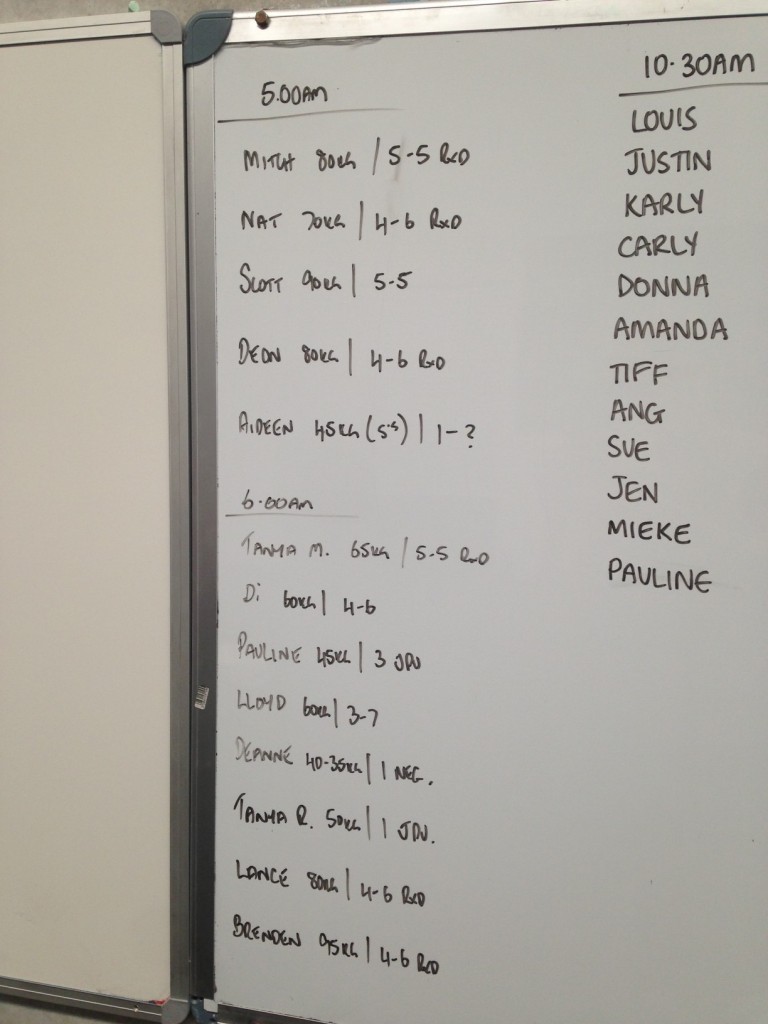 5.00AM
MITCH 80KG | 5-5 RXD
NAT 70KG | 4-6 RXD
SCOTT 90KG | 5-5
DEON 80KG | 4-6 RXD
AIDEEN 45KG (5-5) | 1-?
6.00AM
TANYA M. 65KG | 5-5 RXD
Di 60KG | 4-6
PAULINE 45KG | 3 JPU
LLOYD 60KG | 3-7
DEANNE 40-35KG | 1 NEG.
TANYA R. 50KG | 1 JPU.
LANCE 80KG | 4-6 RXD
BRENDEN 95KG | 4-6 RXD
10.30AM
LOUIS
JUSTIN
KARLY
CARLY
DONNA
AMANDA
TIFF
ANG
SUE
JEN
MIEKE
PAULINE